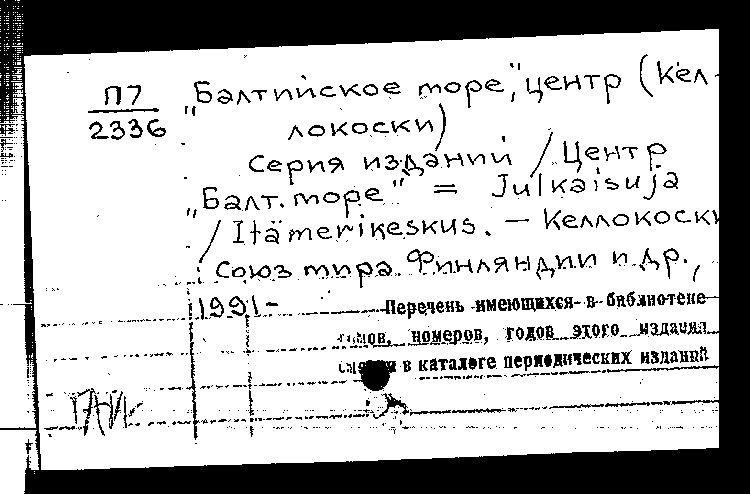 П7
2336
"Балтийское море", центр (Кел-
локоски)
Серия изданий / Центр
"Балт. море" = Julkaisuja
/ Itämerikeskus. – Келлокоски
: Союз мира Финляндии и др.,
1991-
Перечень имеющихся в библиотеке
томов, номеров, годов этого издания
смотри в каталоге периодических изданий